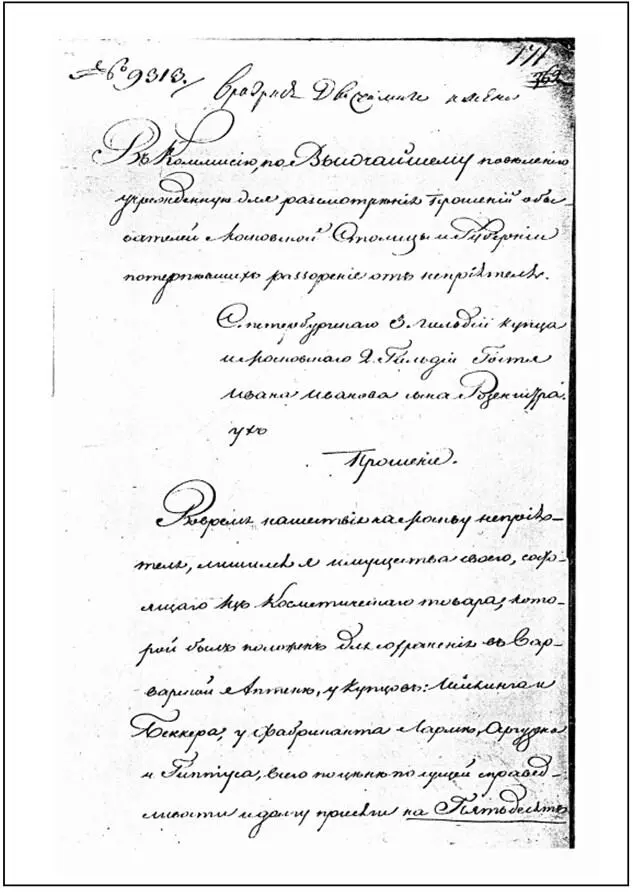 № 9313.
171
762
Въ Коммисію, по Высочайшему повелѣнію
учрежденную для разсмотрѣнія Прошеній обы-
вателей Московской Столицы и Губерніи
потерпѣвшихъ раззореніе отъ непріятеля.
С. петербургскаго 3. гильдіи купца
и Московскаго 2. Гильдіи Гостя
Ивана Иванова сына Розенштра
ухъ
Прошеніе.
Вовремя нашествія на Москву непрія-
теля, лишился я имущества своего, состо-
ящаго изъ Косметическаго товара, кото-
рой былъ положенъ для сохраненія въ Вар-
варской Аптеке, у купцовъ:
Беккера, у фабриканта
и Гиптуса, всего по цене по сущей справед-
ливости и долгу присяги на Пятьдесятъ